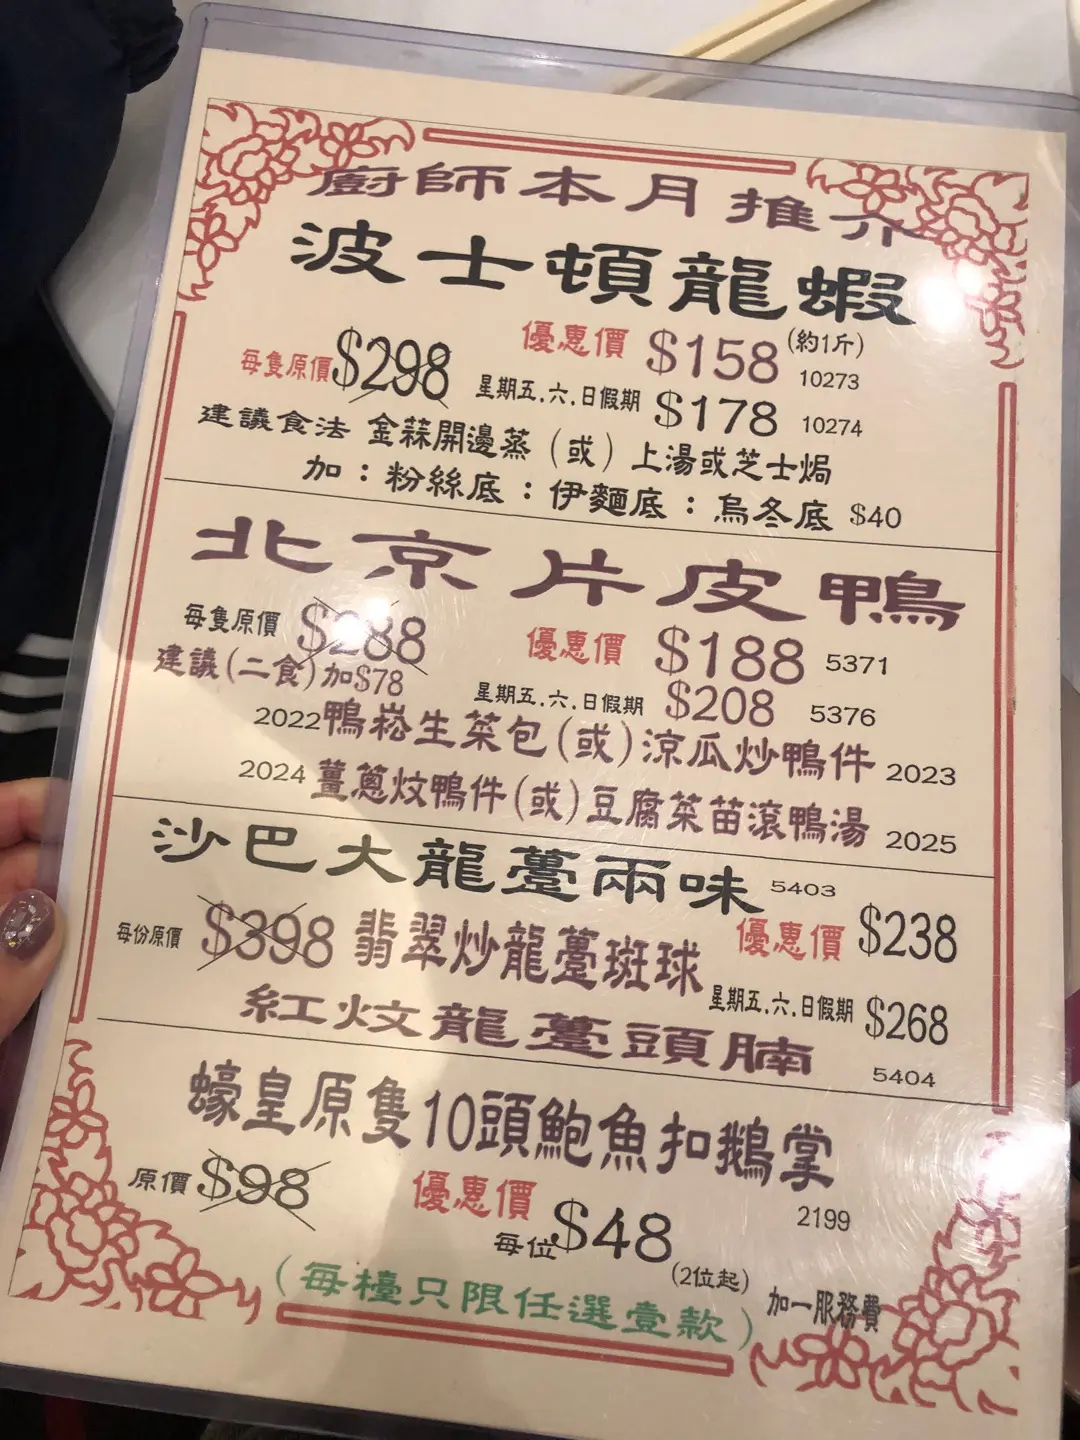 廚師本月推介
波士頓龍蝦
每隻原價$298 優惠價 $158 (約1斤) 10273
星期五.六.日假期 $178 10274
建議食法 金蒜開邊蒸(或)上湯或芝士焗
加:粉絲底:伊麵底:烏冬底 $40
北京片皮鴨
每隻原價 $288 優惠價 $188 5371
建議(二食)加$78 星期五.六.日假期 $208 5376
2022鴨崧生菜包(或)涼瓜炒鴨件 2023
2024 薑蔥炆鴨件(或)豆腐菜苗滾鴨湯 2025
沙巴大龍躉兩味 5403
每份原價 $398 翡翠炒龍躉斑球 優惠價 $238
星期五.六.日假期 $268
紅炆龍躉頭腩 5404
蠔皇原隻10頭鮑魚扣鵝掌
原價 $98 優惠價 每位$48 (2位起) 2199
(每檯只限任選壹款) 加一服務費